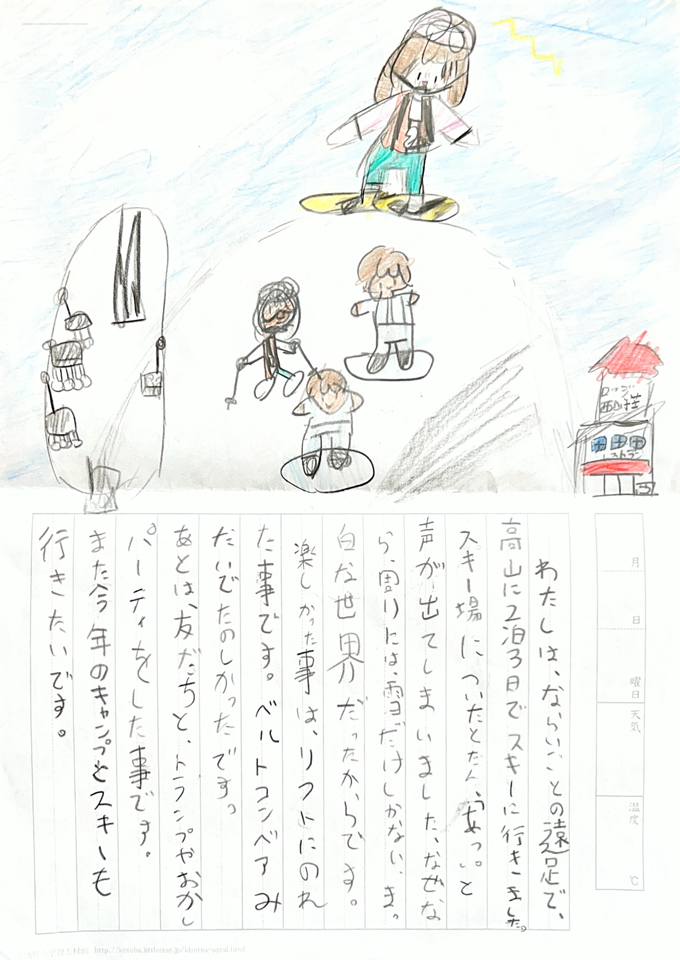 ロッジ
西山荘
レストラン
月
日
曜日
天気
温度
℃
わたしは、ならいごとの遠足で、
高山に2泊3日でスキーに行きました。
スキー場についたとたん、「あっ。」と
声が出てしまいました。なぜな
ら、周りには、雪だけしかない、ま。
白な世界だったからです。
楽しかった事は、リフトにのれ
た事です。ベルトコンベアみ
たいでたのしかったです。
あとは、友だちと、トランプやおかし
パーティをした事です。
また今年のキャンプとスキーも
行きたいです。